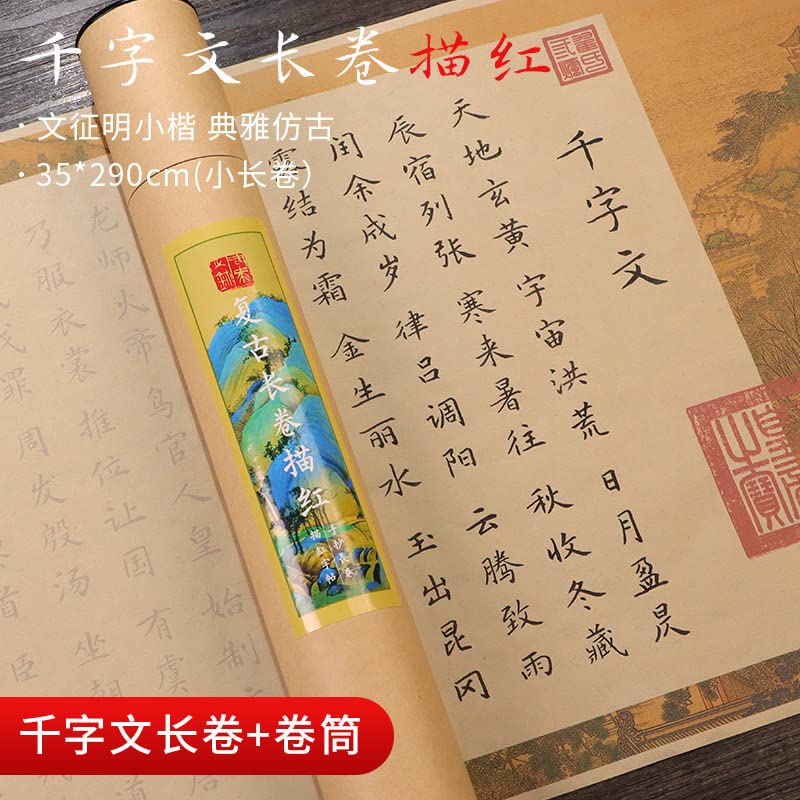 千字文长卷描红
· 文征明小楷 典雅仿古
· 35*290cm(小长卷）
千字文
天地玄黄 宇宙洪荒 日月盈昃
辰宿列张 寒来暑往 秋收冬藏
闰余成岁 律吕调阳 云腾致雨
露结为霜 金生丽水 玉出昆冈
复古长卷描红
手抄长卷
描红字帖
龙师火帝 鸟官人皇 始制
乃服衣裳 推位让国 有虞
伐罪 周发殷汤 坐朝
首臣
千字文长卷+卷筒